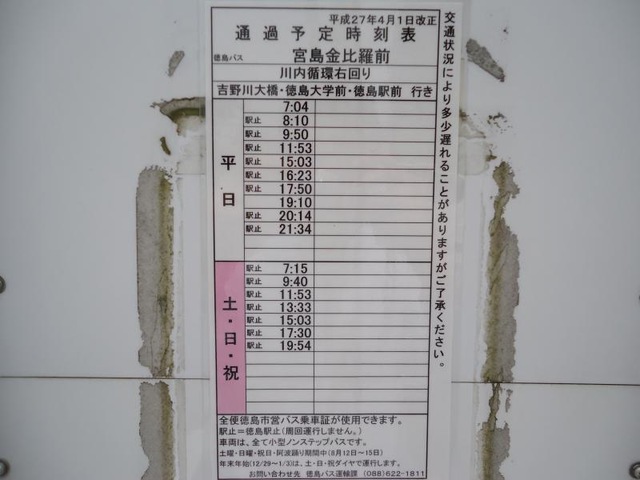 平成27年4月1日改正
通過予定時刻表
徳島バス 宮島金比羅前
川内循環右回り
吉野川大橋・徳島大学前・徳島駅前 行き
平日
7:04
駅止 8:10
駅止 9:50
駅止 11:53
駅止 15:03
駅止 16:23
駅止 17:50
19:10
駅止 20:14
駅止 21:34
土・日・祝
駅止 7:15
駅止 9:40
駅止 11:53
駅止 13:33
駅止 15:03
駅止 17:30
駅止 19:54
全便徳島市営バス乗車証が使用できます。
駅止=徳島駅止(周回運行しません。)
車両は、全て小型ノンステップバスです。
土曜・日曜・祝日・阿波踊り期間中(8月12日~15日)
年末年始(12/29~1/3)は、土・日・祝ダイヤで運行します。
お問い合わせ先 徳島バス運輸課 (088)622-1811
交通状況により多少遅れることがありますがご了承ください。